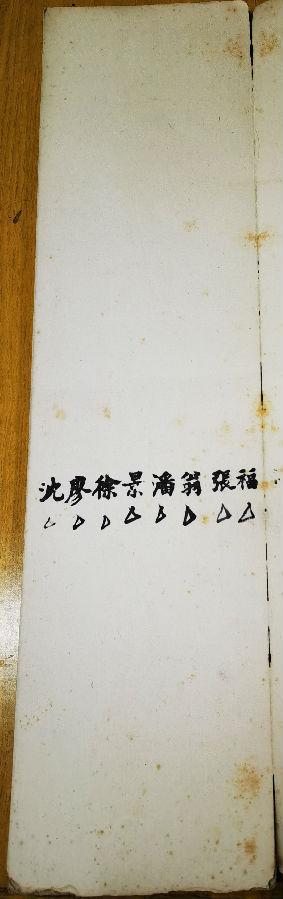 福△
張△
翁△
潘△
景△
徐△
廖△
沈△